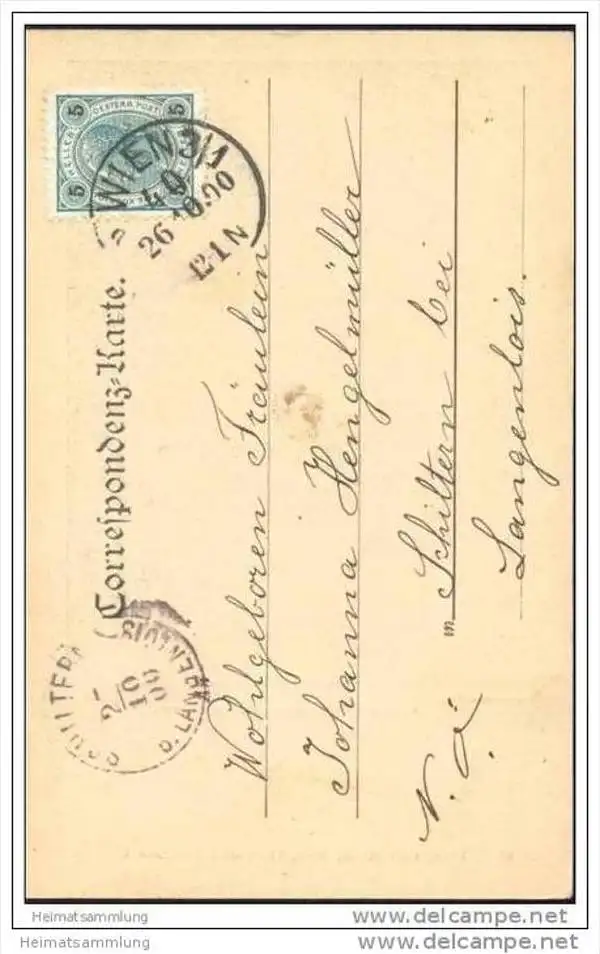 5 5
OESTERR. POST
HELLER
5 5
WIEN 3/1
40
26 10.00
12-1N
a
Correspondenz-Karte.
Wohlgeboren Fräulein
Johanna Hengelmüller
in Schiltern bei
Langenlois.
N. Ö.
10
00
Heimatsammlung www.delcampe.net
Heimatsammlung www.delcampe.net